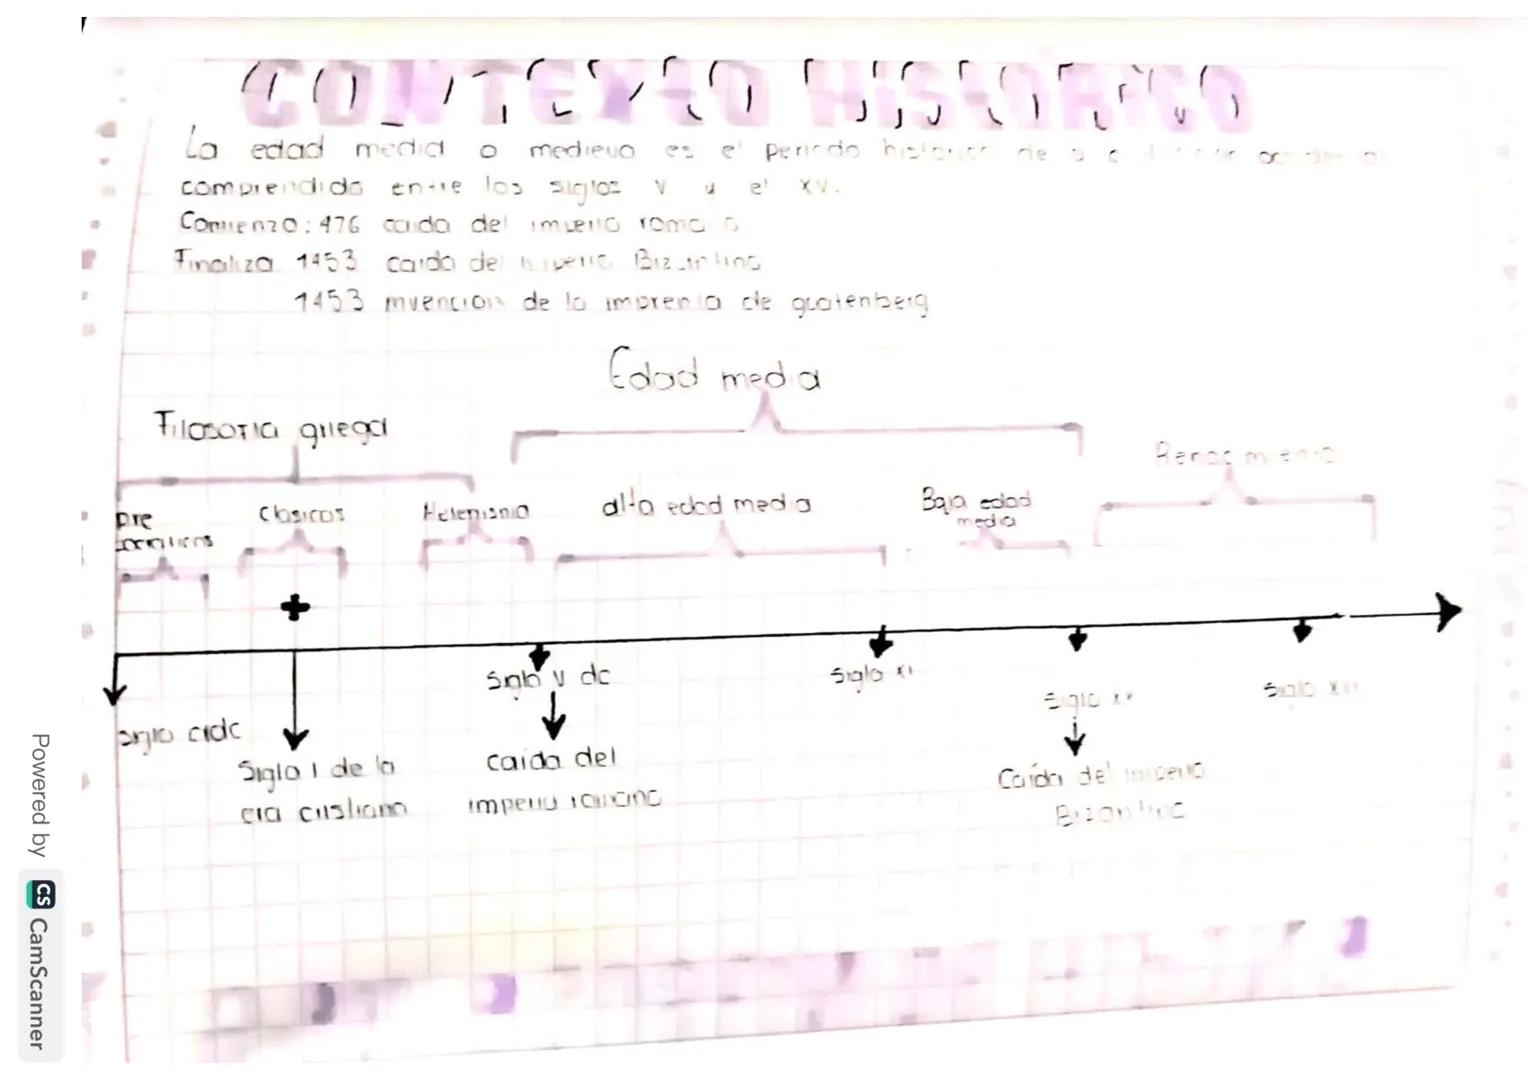 CONTEXTO HISTORICO
La edad media o medievo es el periodo historico de
comprendido entre los siglos V y el XV.
Comienzo: 476 caida del imperio romano
Finaliza 1453 caida del imperio Bizantino
1453 invencion de la imprenta de guatenberg
Edad media
Filosofia griega
Renacimiento
pre
Clasicos
Helenismo
alta edad media
Baja edad
media
Siglo V dc
Siglo XI
Siglo XV
Siglo
Siglo I de la
era cristiana
caida del
imperio romano
Caida del imperio
Bizantino
Powered by CS CamScanner